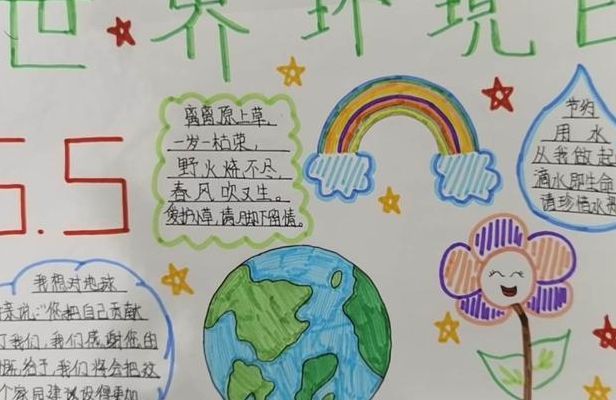 世界环境日
6.5
离离原上草，
一岁一枯荣，
野火烧不尽，
春风吹又生。
爱护小草，请脚下留情。
节约
用水
从我做起
滴水即生命
请珍惜水
我想对地球
亲说：“您把自己贡献
了我们，我们感谢您的
给予，我们将会把这
个家园建设得更加